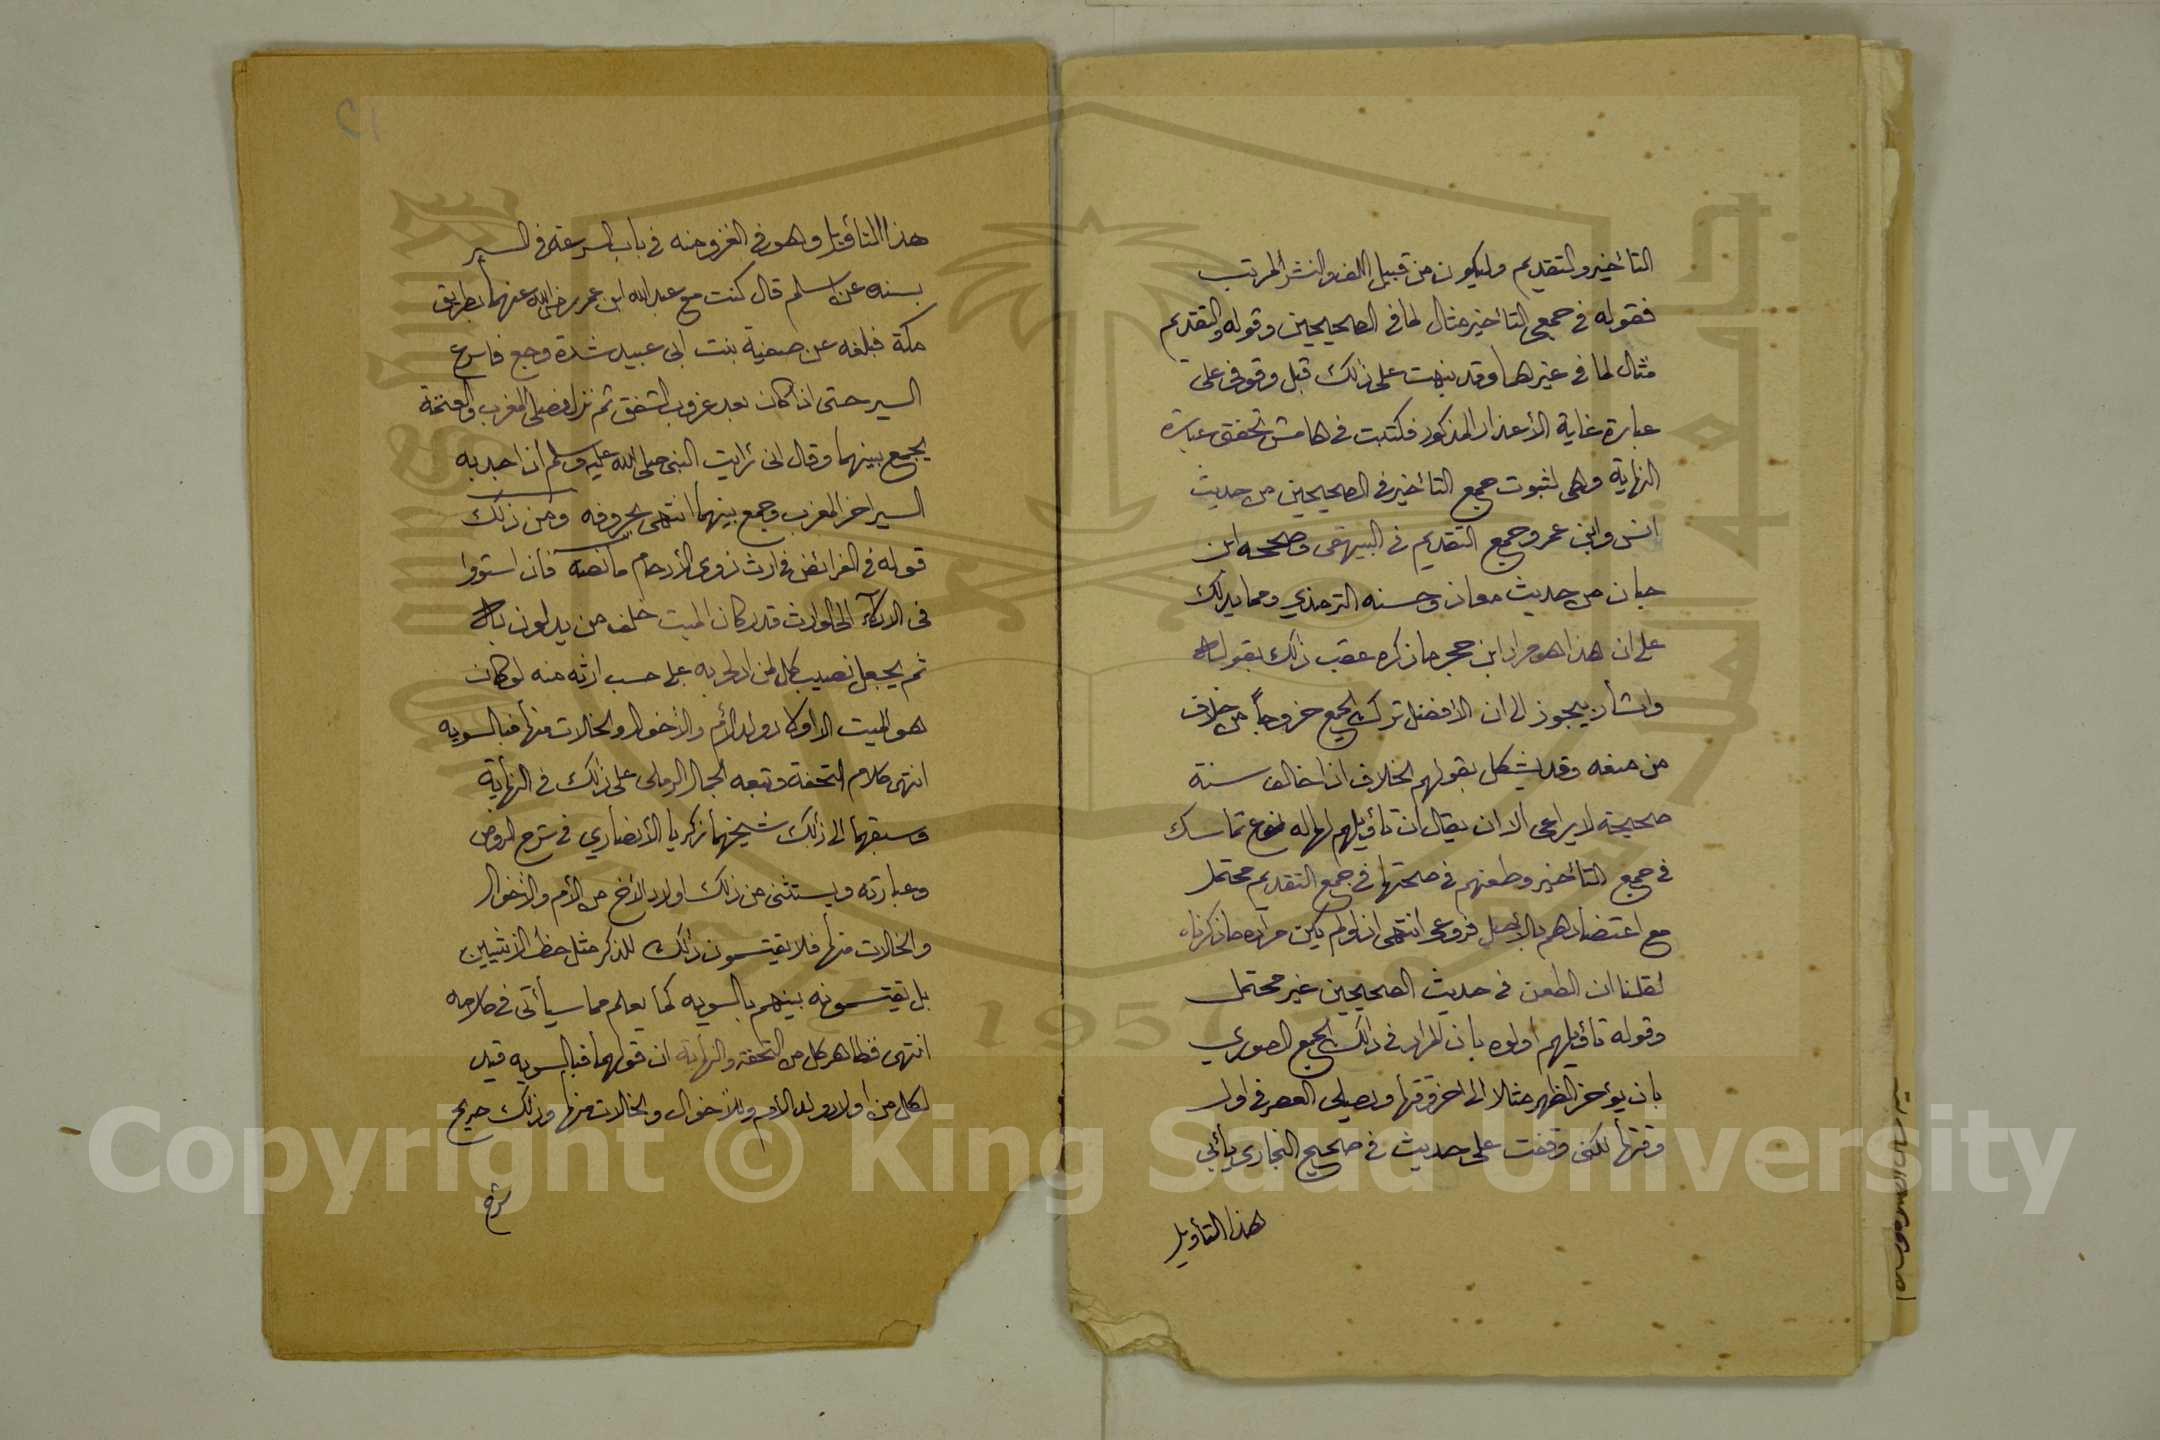 التأخير والتقديم وليكون من قبيل اللف والنشر المرتب
فقوله في جمعي التأخير مثال لما في الصحيحين وقوله والتقديم
مثال لما في غيرهما وقد نبهت على ذلك قبل وقوفي على
عبارة غاية الأعذار المذكور فكتبت في هامش تحقق عبارة
النهاية وهي لثبوت جمع التأخير في الصحيحين من حديث
انس وابن عمر وجمع التقديم في البيهقي وصححه ابن
حبان من حديث معاذ وحسنه الترمذي ومما يدلك
على ان هذا هو مراد ابن حجر ما ذكره عقب ذلك بقوله
واشار بيجوز الى ان الأفضل ترك الجمع خروجاً من خلاف
من منعه وقد يشكل بقولهم الخلاف اذا خالف سنة
صحيحة لا يراعى الا ان يقال ان تأويلهم لها له نوع تماسك
في جمع التأخير وطعنهم في صحتها في جمع التقديم محتمل
مع اعتضادهم بالأصل فروعي انتهى اذ لو لم يكن مراده ما ذكرناه
لقلنا ان الطعن في حديث الصحيحين غير محتمل
وقوله تأويلهم اولوه بان المراد في ذلك الجمع الصوري
بان يؤخر الظهر مثلا الى اخر وقتها ويصلى العصر في اول
وقتها لكني وقفت على حديث في صحيح البخاري يأبي
هذا التأويل
هذا التأويل وهو في الغزو منه في باب السرعة في السير
بسنده عن اسلم قال كنت مع عبد الله ابن عمر رضي الله عنهما بطريق
مكة فبلغه عن صفية بنت ابي عبيد شدة وجع فاسرع
السير حتى اذا كان بعد غروب الشفق ثم نزل فصلى المغرب والعتمة
يجمع بينهما وقال انى رايت النبي صلى الله عليه وسلم اذا جد به
السير اخر المغرب وجمع بينهما انتهى بحروفه ومن ذلك
قوله في الفرائض في ارث ذوي الأرحام ما نصه فان استووا
في الادلاء الى الوارث قدر كان الميت خلف من يدلون به
ثم يجعل نصيب كل لمن ادلى به على حسب ارثه منه لو كان
هو الميت الا اولاد ولد الأم والأخوال والخالات منها فبالسويه
انتهى كلام التحفة وتبعه الجمال الرملي على ذلك في النهاية
وسبقهما الى ذلك شيخهما زكريا الأنصاري في شرح الروض
وعبارته ويستثنى من ذلك اولاد الأخ من الأم والأخوال
والخالات منها فلا يقتسمون ذلك للذكر مثل حظ الانثيين
بل يقتسمونه بينهم بالسويه كما يعلم مما سيأتى في كلامه
انتهى فظاهر كل من التحفة والنهاية ان قولهما فبالسويه قيد
لكل من أولاد ولد الأم وللأخوال والخالات منها وذلك صريح